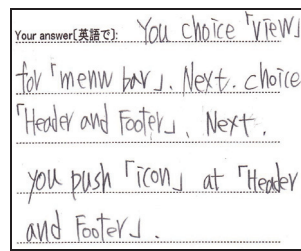 Your answer[英語で]: You choice「view」
for「menu bar」. Next. choice
「Header and Footer」. Next.
you push「icon」at「Header
and Footer」.